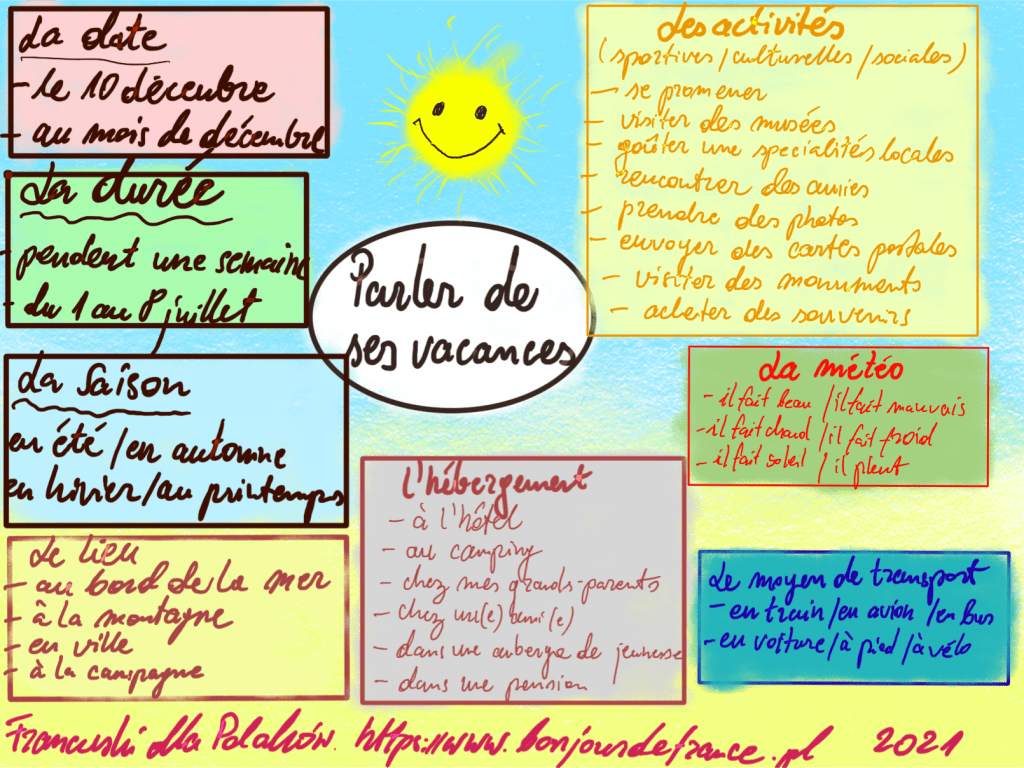 La date
- le 10 décembre
- au mois de décembre
La durée
- pendent une semaine
- du 1 au 8 juillet
La saison
en été / en automne
en hivier / au printemps
Le lieu
- au bord de la mer
- à la montagne
- en ville
- à la campagne
Parler de
ses vacances
Les activités
(sportives / culturelles / sociales)
- se promener
- visiter des musées
- goûter une specialités locales
- rencontrer des amies
- prendre des photos
- envoyer des cartes postales
- visiter des monuments
- acheter des souvenirs
La météo
- il fait beau / il fait mauvais
- il fait chaud / il fait froid
- il fait soleil / il pleut
L'hébergement
- à l'hôtel
- au camping
- chez mes grands-parents
- chez un(e) ami(e)
- dans une auberge de jeunesse
- dans une pension
Le moyen de transport
- en train / en avion / en bus
- en voiture / à pied / à vélo
Francuski dla Polaków. https://www.bonjourdefrance.pl 2021